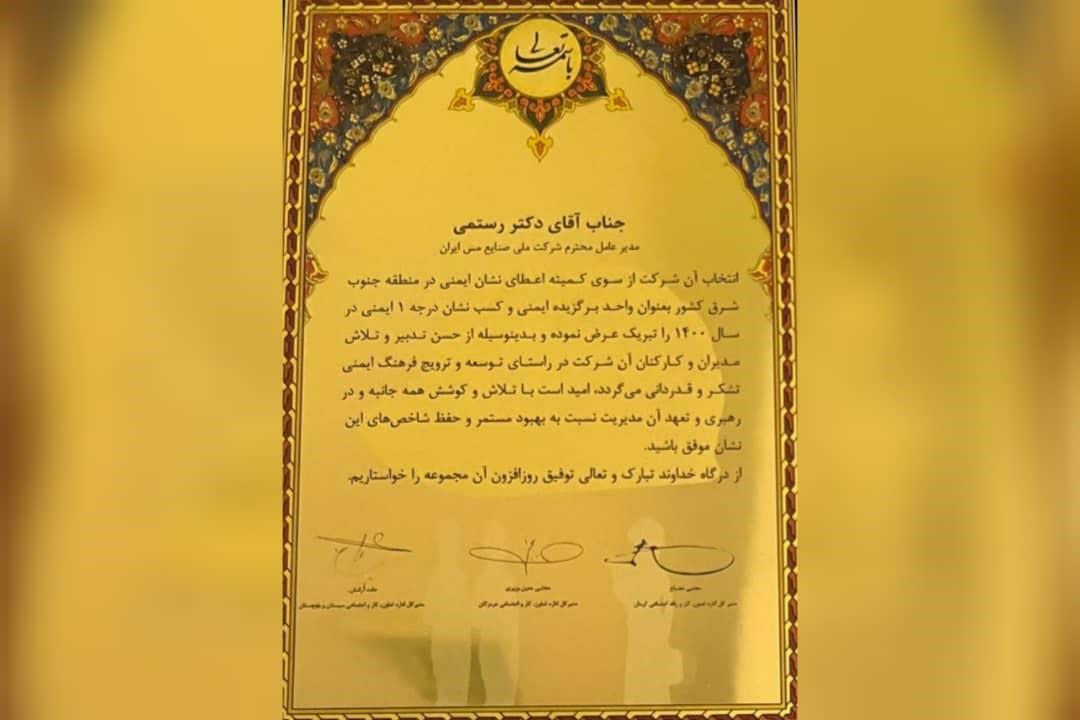 باسمه تعالی
جناب آقای دکتر رستمی
مدیر عامل محترم شرکت ملی صنایع مس ایران
انتخاب آن شرکت از سوی کمیته اعطای نشان ایمنی در منطقه جنوب
شرق کشور بعنوان واحد برگزیده ایمنی و کسب نشان درجه ۱ ایمنی در
سال ۱۴۰۰ را تبریک عرض نموده و بدینوسیله از حسن تدبیر و تلاش
مدیران و کارکنان آن شرکت در راستای توسعه و ترویج فرهنگ ایمنی
تشکر و قدردانی می‌گردد، امید است با تلاش و کوشش همه جانبه و در
رهبری و تعهد آن مدیریت نسبت به بهبود مستمر و حفظ شاخص‌های این
نشان موفق باشید.
از درگاه خداوند تبارک و تعالی توفیق روزافزون آن مجموعه را خواستاریم.
مدیر کل اداره تعاون، کار و رفاه اجتماعی کرمان
مدیرکل اداره تعاون، کار و اجتماعی هرمزگان
مدیرکل اداره تعاون، کار و اجتماعی سیستان و بلوچستان